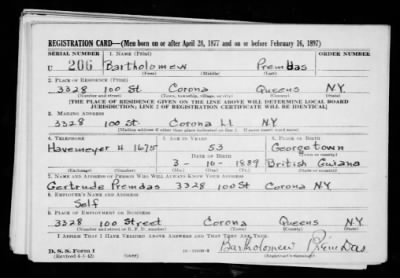 REGISTRATION CARD—(Men born on or after April 28, 1877 and on or before February 16, 1897)
SERIAL NUMBER 1. NAME (Print) ORDER NUMBER
U 206 Bartholomew Premdas
(First) (Middle) (Last)
2. PLACE OF RESIDENCE (Print)
3328 100 St. Corona Queens N.Y.
(Number and street) (Town, township, village, or city) (County) (State)
[THE PLACE OF RESIDENCE GIVEN ON THE LINE ABOVE WILL DETERMINE LOCAL BOARD
JURISDICTION; LINE 2 OF REGISTRATION CERTIFICATE WILL BE IDENTICAL]
3. MAILING ADDRESS
3328 100 St Corona L I N.Y.
[Mailing address if other than place indicated on line 2. If same insert word same]
4. TELEPHONE 5. AGE IN YEARS 6. PLACE OF BIRTH
Havemeyer 4 1675 53 Georgetown
DATE OF BIRTH (Town or county)
3 - 10 - 1889 British Guiana
(Exchange) (Number) (Mo.) (Day) (Yr.) (State or country)
7. NAME AND ADDRESS OF PERSON WHO WILL ALWAYS KNOW YOUR ADDRESS
Gertrude Premdas 3328 100 St Corona NY
8. EMPLOYER'S NAME AND ADDRESS
Self
9. PLACE OF EMPLOYMENT OR BUSINESS
3328 100 Street Corona Queens N.Y.
(Number and street or R. F. D. number) (Town) (County) (State)
I AFFIRM THAT I HAVE VERIFIED ABOVE ANSWERS AND THAT THEY ARE TRUE.
D. S. S. Form 1 Bartholomew PremDas
(Revised 4-1-42) (Registrant's signature)